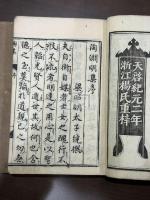 天啓紀元二年
浙江楊氏重梓
陶淵明集序
梁昭明太子統撰
夫自衒自媒者士女之醜行不
忮不求者明達之用心是以聖
人韜光賢人遁世其故何也含
德之至莫踰於道親己之切無